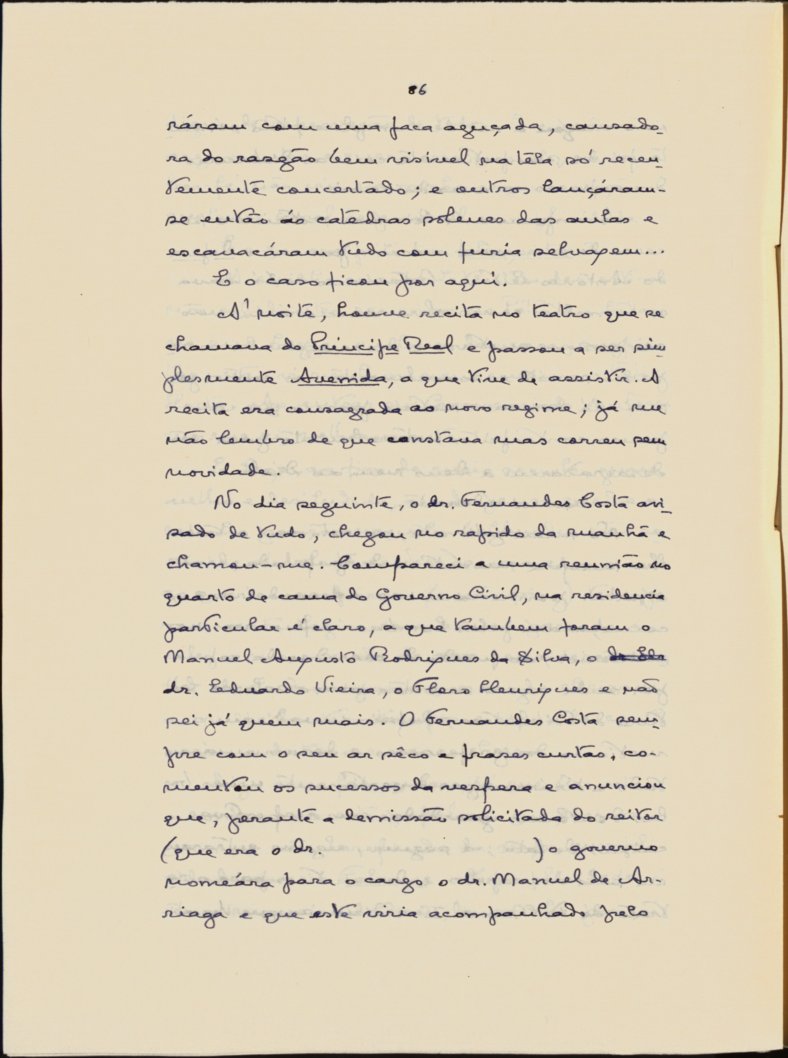 86
ráram com uma faca aguçada, causado-
ra do rasgão bem visivel na téla só recen-
temente concertado; e outros lançáram-
se então ás catédras solenes das aulas e
escavacáram tudo com furia selvagem...
E o caso ficou por aqui.
A' noite, houve recita no teatro que se
chamava do Principe Real e passou a ser sim-
plesmente Avenida, a que tive de assistir. A
recita era consagrada ao novo regime; já me
não lembro de que constava mas correu sem
novidade.
No dia seguinte, o dr. Fernandes Costa avi-
sado de tudo, chegou no rapido da manhã e
chamou-me. Compareci a uma reunião no
quarto de cama do Governo Civil, na residencia
particular é claro, a que tambem foram o
Manuel Augusto Rodrigues da Silva, o dr. Edu
dr. Eduardo Vieira, o Floro Henriques e não
sei já quem mais. O Fernandes Costa sem-
pre com o seu ar sêco e frases curtas, co-
mentou os sucessos da vespera e anunciou
que, perante a demissão solicitada do reitor
(que era o dr. ) o governo
nomeára para o cargo o dr. Manuel de Ar-
riaga e que este viria acompanhado pelo